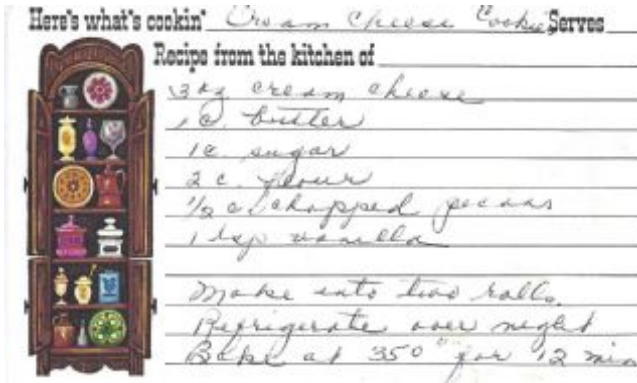 Here's what's cookin' Cream Cheese Cookies Serves
Recipe from the kitchen of
3 oz cream cheese
1 c. butter
1 c. sugar
2 c. flour
1/2 c. chopped pecans
1 tsp vanilla
Make into two rolls.
Refrigerate over night
Bake at 350° for 12 min